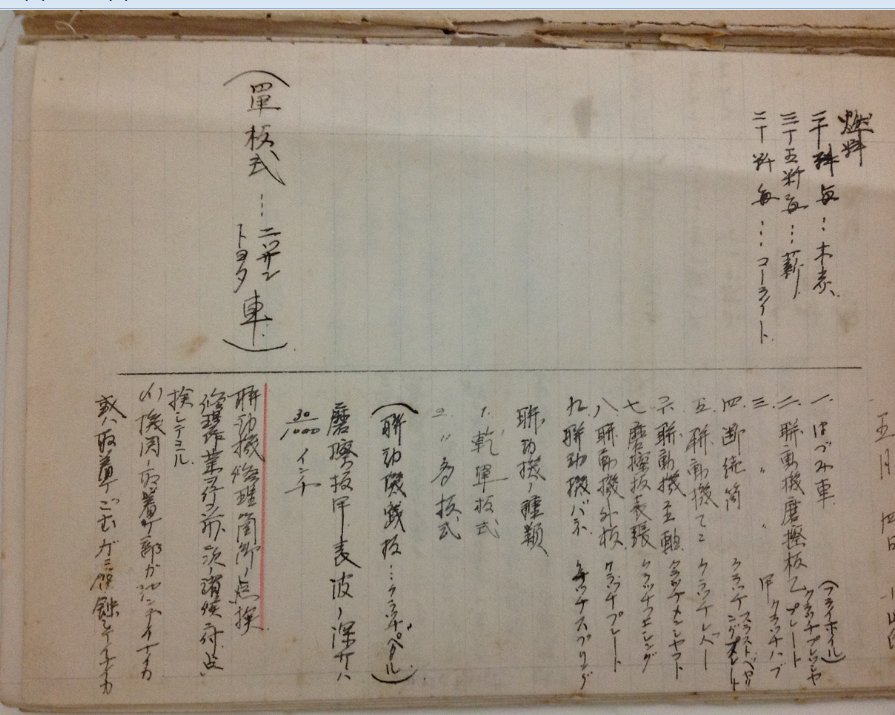 五月 四日
燃料
二十粁毎…木炭
三十五粁毎…薪
二十粁毎…コーライト
一、はづみ車 (フライホイル)
二、聯動機磨擦板乙 クラッチプレッシャプレート
三、〃 〃 甲 クラッチハブ
四、断続筒 クラッチスラストベアリング
五、聯動機てこ クラッチレバー
六、聯動機主軸 クラッチメンシャフト
七、磨擦板表張 クラッチフェーシング
八、聯動機外板 クラッチプレート
九、聯動機バネ クラッチスプリング
聯動機ノ種類
1、乾単板式
2、〃多板式
(聯動機践板…クラッチペタル)
磨擦板甲表波ノ深サハ
30/1000 インチ
(單板式…ニッサン トヨタ 車)
聯動機修理箇所ノ点検
修理作業ヲ行フ前ニ次ノ諸候ニ付点
検シテ見ル
(イ)機関ノ取着ケ部ガ
或ハ取着ケゴムガ腐蝕シテイナイカ